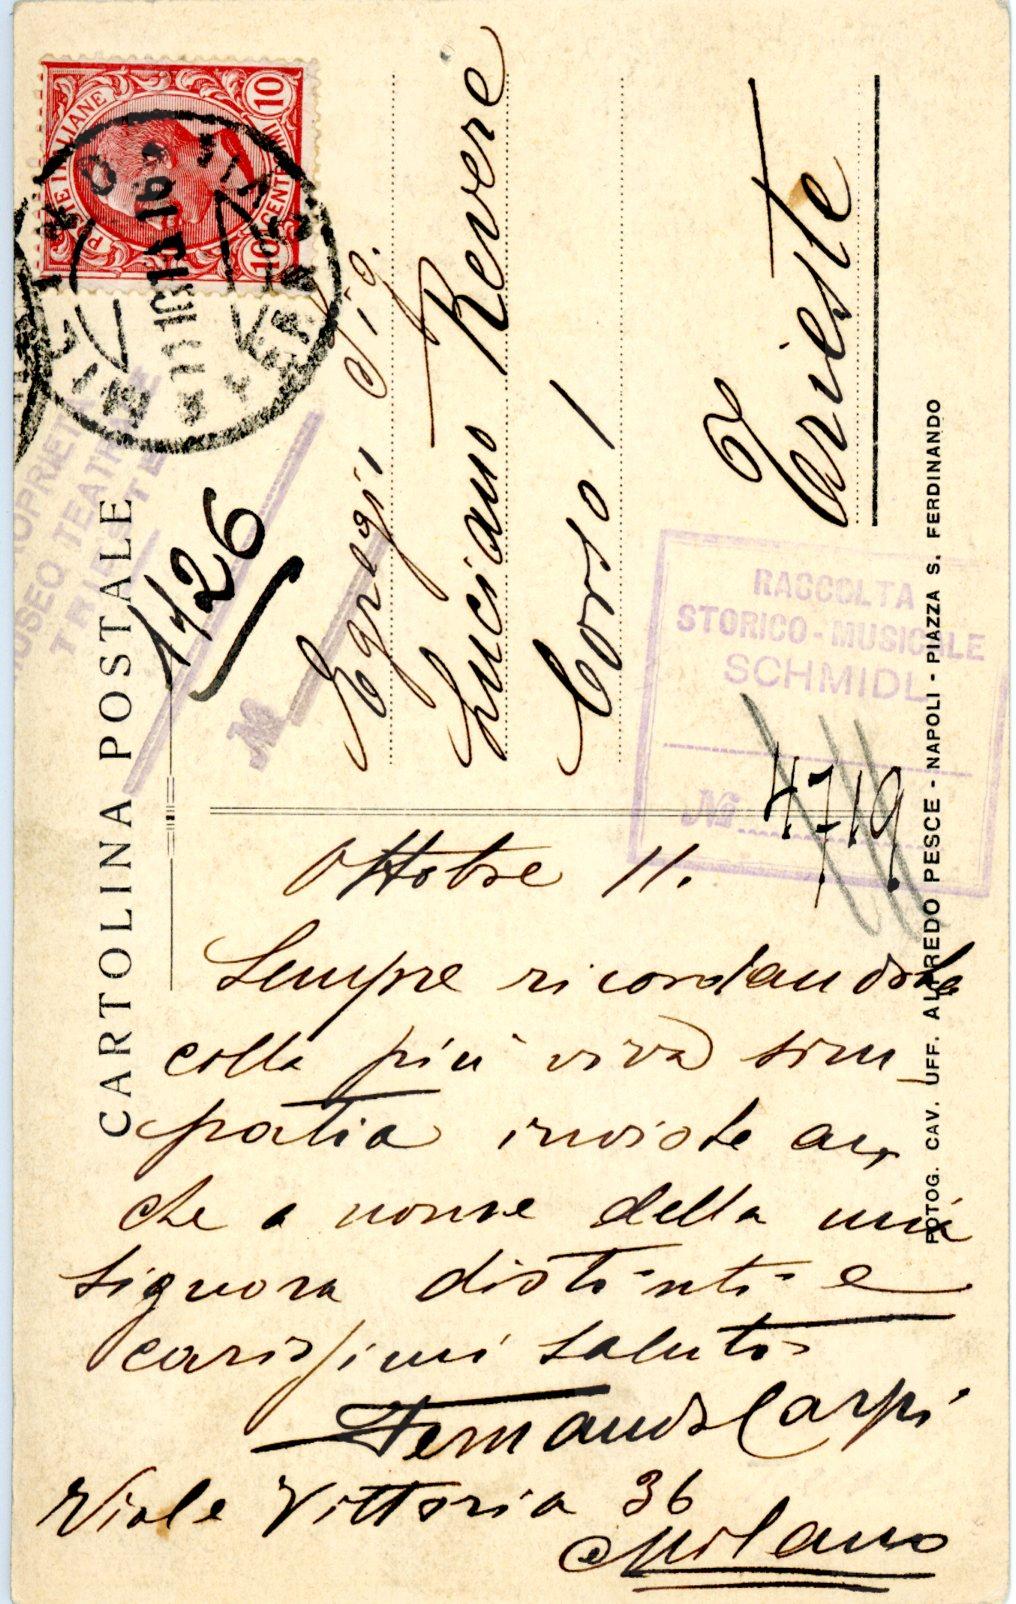 POSTE ITALIANE
10 CENTESIMI 10
MILANO
PROPRIETÀ
MUSEO TEATRALE
TRIESTE
CARTOLINA POSTALE
1/26
№
Egregio Sig.
Luciano Revere
Corso 1
Trieste
RACCOLTA
STORICO-MUSICALE
SCHMIDL
№ 4719
FOTOG. CAV. UFF. ALFREDO PESCE - NAPOLI - PIAZZA S. FERDINANDO
Ottobre 11.
Sempre ricordandola
colla più viva sim-
patia inviole an-
che a nome della mia
signora distinti e
carissimi saluti
Fernando Carpi
Viale Vittoria 36
Milano